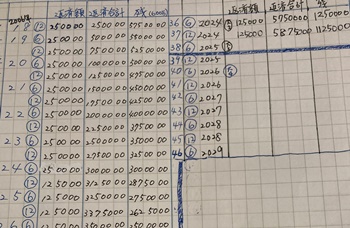 返済額 返済合計 残(6000)
18 ⑫ 250000 2500 5750000
19 ⑥ 250000 500000 5500000
⑫ 250000 750000 525000
20 ⑥ 250000 1000000 50000
⑫ 250000 1250000 47500
21 ⑥ 250000 1500000 45000
⑫ 250000 1750000 42500
22 ⑥ 250000 2000000 4000
⑫ 250000 2250000 3750
23 ⑥ 250000 250000 35000
⑫ 250000 275000 325000
24 ⑥ 250000 300000 300000
⑫ 125000 312500 287500
25 ⑥ 125000 325000 27500
⑫ 125000 3375000 2625000
26 ⑥ 125000
返済額 返済合計 残
36 ⑥ 2024 125000 5750000 1250000
37 ⑫ 2024 125000 5875000 1125000
38 ⑥ 2025
39 ⑫ 2025
40 ⑥ 2026
41 ⑫ 2026
42 ⑥ 2027
43 ⑫ 2027
44 ⑥ 2028
45 ⑫ 2028
46 ⑥ 2029